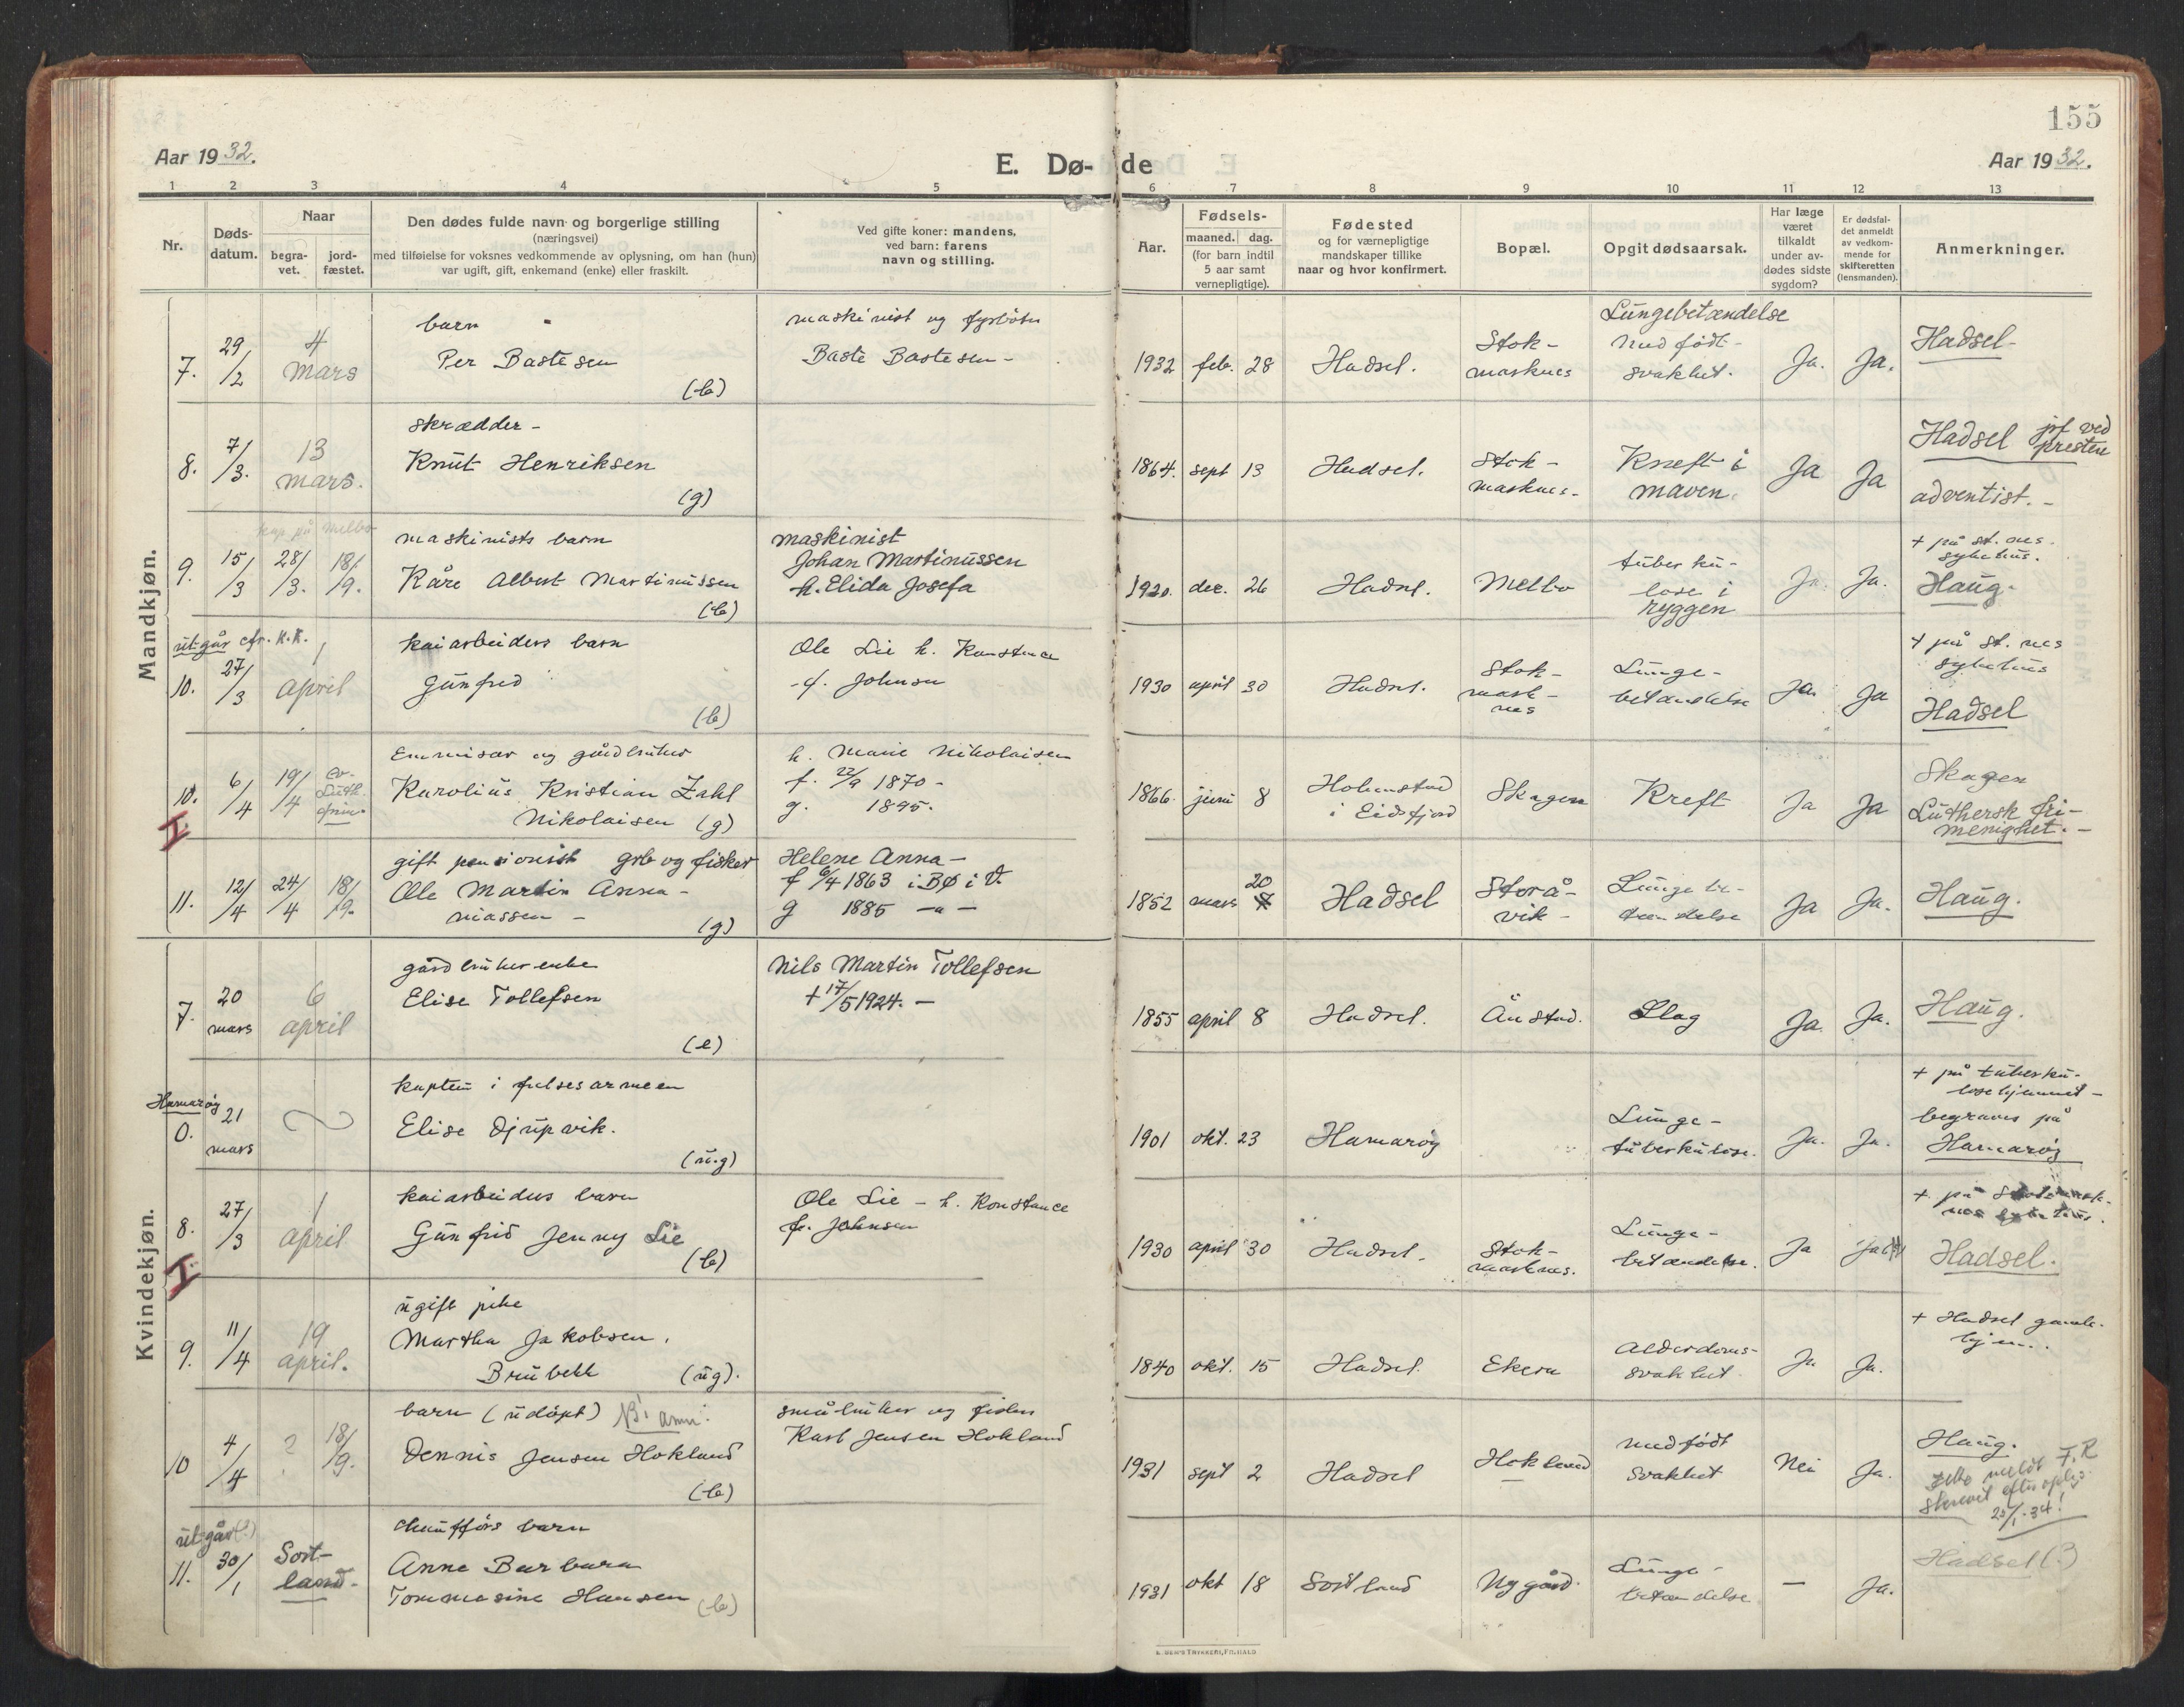 155
Aar 1932.
E. Dø-de
Aar 1932.
1 2 3 4 5 6 7 8 9 10 11 12 13
Nr.
Døds-
datum.
Naar
begra-
vet.
jord-
fæstet.
Den dødes fulde navn og borgerlige stilling
(næringsvei)
med tilføielse for voksnes vedkommende av oplysning, om han (hun)
var ugift, gift, enkemand (enke) eller fraskilt.
Ved gifte koner: mandens,
ved barn: farens
navn og stilling.
Aar.
Fødsels-
maaned. dag.
(for barn indtil
5 aar samt
vernepligtige).
Fødested
og for værnepligtige
mandskaper tillike
naar og hvor konfirmert.
Bopæl.
Opgit dødsaarsak.
Har læge
været
tilkaldt
under av-
dødes sidste
sygdom?
Er dødsfal-
det anmeldt
av vedkom-
mende for
skifteretten
(lensmanden).
Anmerkninger.
Mandkjøn.
7.
29/2
4
mars
barn
Per Bastesen
(b)
maskinist og fyrbøter
Baste Bastesen -
1932 feb. 28
Hadsel.
Stok-
marknes
Lungebetændelse
Medfødt
svakhet.
Ja.
Ja.
Hadsel
8.
7/3.
13
mars.
skrædder -
Knut Henriksen
(g)
1864. sept 13
Hadsel.
Stok-
marknes.
Kreft i
maven.
Ja
Ja
Hadsel jf ved
presten
adventist. -
9.
15/3
28/3.
18/9.
på Melbo
maskinists barn
Kåre Albert Martinussen
(b)
maskinist
Johan Martinussen
h. Elida Josefa
1920. dec. 26
Hadsel.
Melbo
tuberku-
lose i
ryggen
Ja.
Ja.
+ på St. nes
sykehus.
Haug.
utgår cfr. K.K.
10.
27/3
1
april
kaiarbeiders barn
Gunfrid
(b)
Ole Lie h. Konstance
f. Johnsen
1930 april 30
Hadsel.
Stok-
mark-
nes
Lunge-
betændelse
Ja.
Ja
+ på St. nes
sykehus
Hadsel
10.
6/4
19/4
ev-
Luth.
frim.
Emmisær og gårdbruker
Karolius Kristian Zahl
Nikolaisen (g)
h. Marie Nikolaisen
f. 22/9 1870 -
g. 1895.
1866. juni 8
Holmstad
i Eidsfjord
Skagen
Kreft
Ja
Ja
Skagen
Luthersk fri-
menighet. -
I.
11.
12/4
24/4
18/9.
gift pensionist grb og fisker
Ole Martin Anna-
niassen -
(g)
Helene Anna -
f 6/4 1863 i Bø i V.
g 1885 - " -
1852 mars 20
Hadsel
Storå-
vik -
Lungebe-
tændelse
Ja
Ja.
Haug.
Kvindekjøn.
7.
20
mars
6
april
gårdbrukerenke
Elise Tollefsen
(e)
Nils Martin Tollefsen
+ 17/5 1924. -
1855 april 8
Hadsel.
Ånstad.
Slag
Ja.
Ja.
Haug.
Hamarøy
0.
21
mars
kaptein i frelsesarmeen
Elise Djupvik.
(ug)
1901 okt. 23
Hamarøy
Lunge-
tuberkulose.
Ja.
Ja.
+ på tuberku-
losehjemmet -
begraves på
Hamarøy
8.
27/3
1
april
kaiarbeiders barn
Gunfrid Jenny Lie
(b)
Ole Lie - h. Konstance
f. Johnsen
1930 april 30
Hadsel.
Stok-
marknes.
Lunge-
betændelse.
Ja
Ja
+ på Stokmark-
nes sykehus.
Hadsel.
I.
9.
11/4
19
april.
ugift pike
Martha Jakobsen.
Brubekk (ug).
1840 okt. 15
Hadsel.
Ekern
Alderdoms-
svakhet
Ja
Ja.
+ Hadsel gamle-
hjem.
10
4/4
?
18/9.
barn (udøpt) NB! anm.
Dennis Jensen Hokland
(b)
småbruker og fisker
Karl Jensen Hokland
1931 sept 2
Hadsel
Hokland
medfødt
svakhet
Nei
Ja.
Haug.
Ikke meldt F.R
skrevet efter oplys.
25/1-34!
utgår(?)
11.
30/1
Sort-
land.
chaufførs barn
Anne Barbara
Tommasine Hansen (b)
1931 okt 18
Sortland
Nygård.
Lunge-
betændelse
-
Ja.
Hadsel(?)